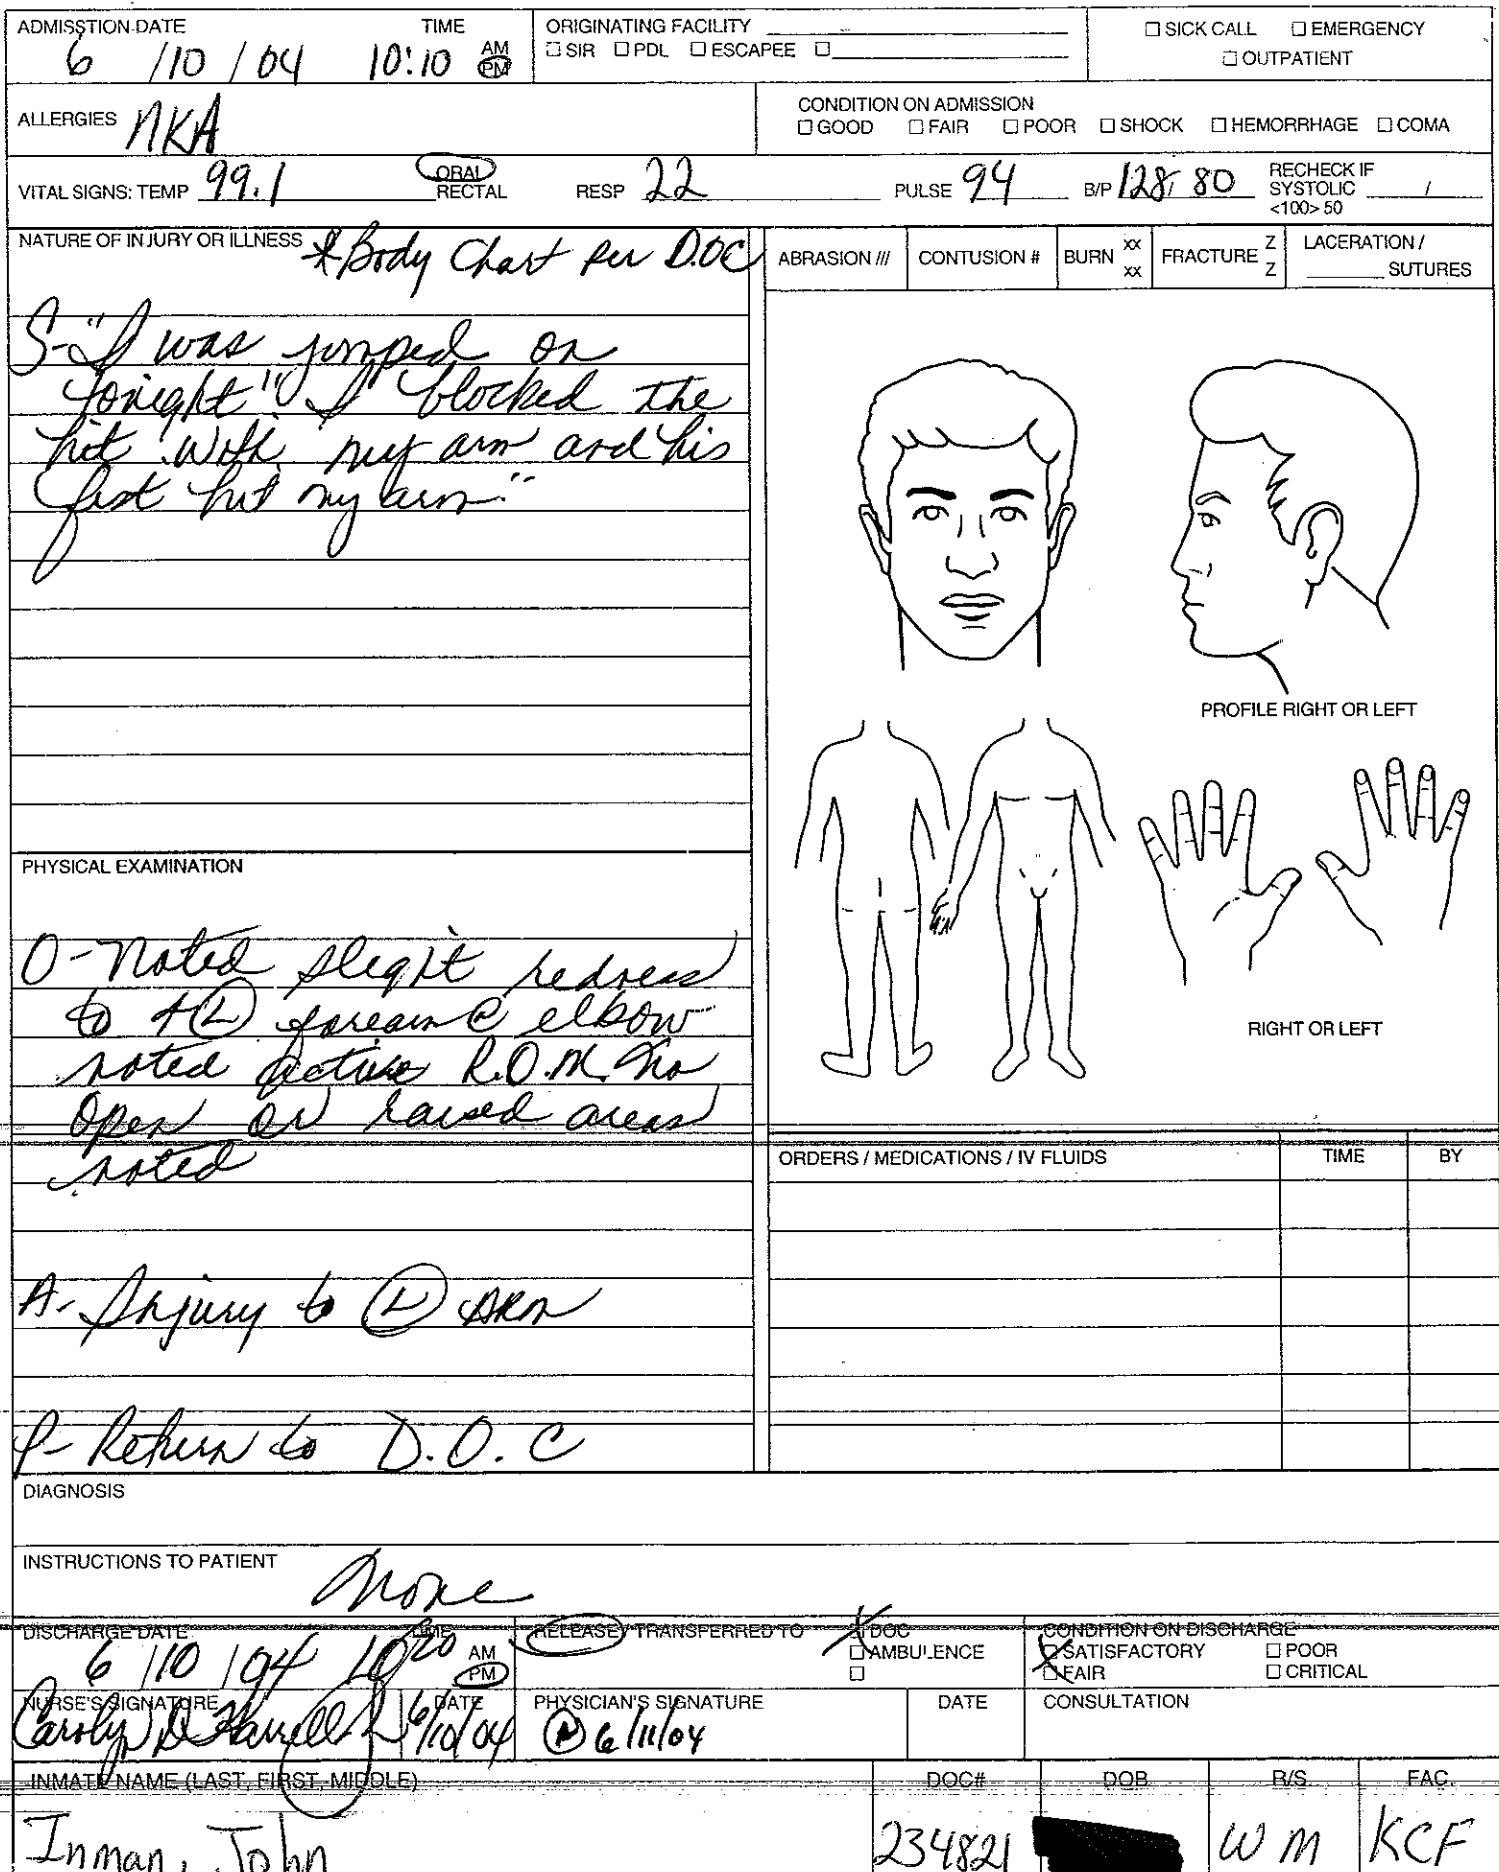 ADMISSTION DATE TIME ORIGINATING FACILITY □ SICK CALL □ EMERGENCY
6 / 10 / 04 10:10 AM PM □ SIR □ PDL □ ESCAPEE □ □ OUTPATIENT
ALLERGIES NKA
CONDITION ON ADMISSION
□ GOOD □ FAIR □ POOR □ SHOCK □ HEMORRHAGE □ COMA
VITAL SIGNS: TEMP 99.1 ORAL RECTAL RESP 22 PULSE 94 B/P 128/80 RECHECK IF SYSTOLIC <100> 50 /
NATURE OF INJURY OR ILLNESS * Body Chart Per D.O.C
S- "I was jumped on
tonight" "I blocked the
hit with my arm and his
fist hit my arm."
ABRASION /// CONTUSION # BURN xx xx FRACTURE Z Z LACERATION / SUTURES
PROFILE RIGHT OR LEFT
RIGHT OR LEFT
PHYSICAL EXAMINATION
O- Noted slight redness
to (L) forearm @ elbow
noted active R.O.M. No
open or raised areas
noted
A- Injury to (L) Arm
P- Return to D.O.C
ORDERS / MEDICATIONS / IV FLUIDS TIME BY
DIAGNOSIS
INSTRUCTIONS TO PATIENT None
DISCHARGE DATE TIME RELEASE / TRANSFERRED TO □ DOC CONDITION ON DISCHARGE
6 / 10 / 04 10:20 AM PM □ AMBULENCE □ SATISFACTORY □ POOR
□ □ FAIR □ CRITICAL
NURSE'S SIGNATURE DATE PHYSICIAN'S SIGNATURE DATE CONSULTATION
Carolyn D Harrell 6/10/04 6/11/04
INMATE NAME (LAST, FIRST, MIDDLE) DOC# DOB R/S FAC.
Inman, John 234821 W M KCF